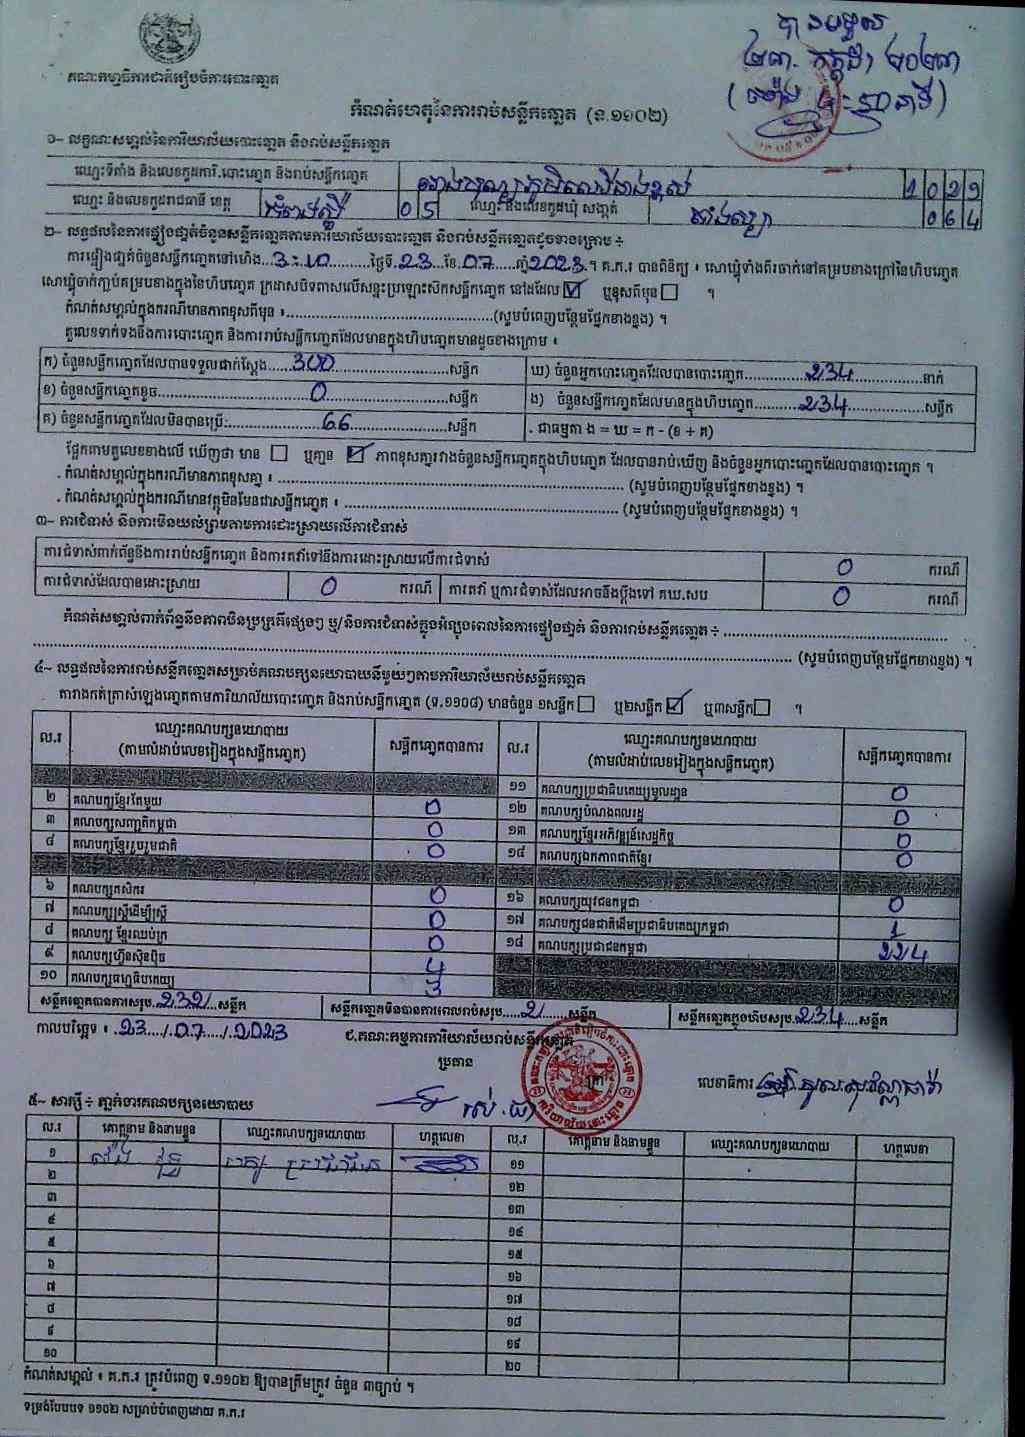 បានទទួល
២៣. កក្កដា ២០២៣
គណៈកម្មាធិការជាតិរៀបចំការបោះឆ្នោត
កំណត់ហេតុនៃការរាប់សន្លឹកឆ្នោត (ទ.១១០២)
១- លក្ខណៈសម្គាល់នៃការិយាល័យបោះឆ្នោត និងរាប់សន្លឹកឆ្នោត
ឈ្មោះទីតាំង និងលេខកូដការិ.បោះឆ្នោត និងរាប់សន្លឹកឆ្នោត 1029
ឈ្មោះ និងលេខកូដរាជធានី ខេត្ត កំពង់ស្ពឺ 05 ឈ្មោះ និងលេខកូដឃុំ សង្កាត់ 064
២- លទ្ធផលនៃការផ្ទៀងផ្ទាត់ចំនួនសន្លឹកឆ្នោតតាមការិយាល័យបោះឆ្នោត និងរាប់សន្លឹកឆ្នោតដូចខាងក្រោម ÷
ការផ្ទៀងផ្ទាត់ចំនួនសន្លឹកឆ្នោតនៅម៉ោង 3:10 ថ្ងៃទី 23 ខែ 07 ឆ្នាំ 2023 ។ គ.ក.រ បានពិនិត្យ ៖ សោឃ្លុំទាំងពីរចាក់នៅគម្របខាងក្រៅនៃហិបឆ្នោត
សោឃ្លុំចាក់ភ្ជាប់គម្របខាងក្នុងនៃហិបឆ្នោត ក្រដាសបិទពាសលើសន្ទះប្រឡោះស៊កសន្លឹកឆ្នោត នៅដដែល ☑ ឬខុសពីមុន ☐ ។
កំណត់សម្គាល់ក្នុងករណីមានភាពខុសពីមុន ៖ (សូមបំពេញបន្ថែមផ្នែកខាងខ្នង) ។
តួលេខទាក់ទងនឹងការបោះឆ្នោត និងការរាប់សន្លឹកឆ្នោតដែលមានក្នុងហិបឆ្នោតមានដូចខាងក្រោម ៖
ក) ចំនួនសន្លឹកឆ្នោតដែលបានទទួលជាក់ស្តែង 300 សន្លឹក ឃ) ចំនួនអ្នកបោះឆ្នោតដែលបានបោះឆ្នោត 234 នាក់
ខ) ចំនួនសន្លឹកឆ្នោតខូច 0 សន្លឹក ង) ចំនួនសន្លឹកឆ្នោតដែលមានក្នុងហិបឆ្នោត 234 សន្លឹក
គ) ចំនួនសន្លឹកឆ្នោតដែលមិនបានប្រើ 66 សន្លឹក . ជាធម្មតា ង = ឃ = ក - (ខ + គ)
ផ្អែកតាមតួលេខខាងលើ ឃើញថា មាន ☐ ឬគ្មាន ☑ ភាពខុសគ្នារវាងចំនួនសន្លឹកឆ្នោតក្នុងហិបឆ្នោត ដែលបានរាប់ឃើញ និងចំនួនអ្នកបោះឆ្នោតដែលបានបោះឆ្នោត ។
. កំណត់សម្គាល់ក្នុងករណីមានភាពខុសគ្នា ៖ (សូមបំពេញបន្ថែមផ្នែកខាងខ្នង) ។
. កំណត់សម្គាល់ក្នុងករណីមានវត្ថុមិនមែនជាសន្លឹកឆ្នោត ៖ (សូមបំពេញបន្ថែមផ្នែកខាងខ្នង) ។
៣- ការជំទាស់ និងការមិនយល់ព្រមតាមការដោះស្រាយលើការជំទាស់
ការជំទាស់ពាក់ព័ន្ធនឹងការរាប់សន្លឹកឆ្នោត និងការតវ៉ាទៅនឹងការដោះស្រាយលើការជំទាស់ 0 ករណី
ការជំទាស់ដែលបានដោះស្រាយ 0 ករណី ការតវ៉ា ឬការជំទាស់ដែលអាចនឹងប្តឹងទៅ គឃ.សប 0 ករណី
កំណត់សម្គាល់ពាក់ព័ន្ធនឹងភាពមិនប្រក្រតីផ្សេងៗ ឬ/និងការជំទាស់ក្នុងអំឡុងពេលនៃការផ្ទៀងផ្ទាត់ និងការរាប់សន្លឹកឆ្នោត ÷
(សូមបំពេញបន្ថែមផ្នែកខាងខ្នង) ។
៤- លទ្ធផលនៃការរាប់សន្លឹកឆ្នោតសម្រាប់គណបក្សនយោបាយនីមួយៗតាមការិយាល័យរាប់សន្លឹកឆ្នោត
តារាងកត់ត្រាសំឡេងឆ្នោតតាមការិយាល័យបោះឆ្នោត និងរាប់សន្លឹកឆ្នោត (ទ.១១០៨) មានចំនួន ១សន្លឹក ☐ ឬ២សន្លឹក ☑ ឬ៣សន្លឹក ☐ ។
ល.រ ឈ្មោះគណបក្សនយោបាយ (តាមលំដាប់លេខរៀងក្នុងសន្លឹកឆ្នោត) សន្លឹកឆ្នោតបានការ ល.រ ឈ្មោះគណបក្សនយោបាយ (តាមលំដាប់លេខរៀងក្នុងសន្លឹកឆ្នោត) សន្លឹកឆ្នោតបានការ
១១ គណបក្សប្រជាធិបតេយ្យមូលដ្ឋាន 0
២ គណបក្សខ្មែរតែមួយ 0 ១២ គណបក្សបំណងពលរដ្ឋ 0
៣ គណបក្សសញ្ជាតិកម្ពុជា 0 ១៣ គណបក្សខ្មែរអភិវឌ្ឍន៍សេដ្ឋកិច្ច 0
៤ គណបក្សខ្មែររួបរួមជាតិ 0 ១៤ គណបក្សឯកភាពជាតិខ្មែរ 0
៦ គណបក្សកសិករ 0 ១៦ គណបក្សយុវជនកម្ពុជា 0
៧ គណបក្សស្ត្រីដើម្បីស្ត្រី 0 ១៧ គណបក្សជនជាតិដើមប្រជាធិបតេយ្យកម្ពុជា 1
៨ គណបក្ស ខ្មែរឈប់ក្រ 0 ១៨ គណបក្សប្រជាជនកម្ពុជា 224
៩ គណបក្សហ្វ៊ុនស៊ិនប៉ិច 4
១០ គណបក្សធម្មាធិបតេយ្យ 3
សន្លឹកឆ្នោតបានការសរុប 232 សន្លឹក សន្លឹកឆ្នោតមិនបានការពេលរាប់សរុប 2 សន្លឹក សន្លឹកឆ្នោតក្នុងហិបសរុប 234 សន្លឹក
កាលបរិច្ឆេទ ៖ 23/07/2023 ជ.គណៈកម្មការការិយាល័យរាប់សន្លឹកឆ្នោត
ប្រធាន
លេខាធិការ
៥- សាក្សី ÷ ភ្នាក់ងារគណបក្សនយោបាយ
ល.រ គោត្តនាម និងនាមខ្លួន ឈ្មោះគណបក្សនយោបាយ ហត្ថលេខា ល.រ គោត្តនាម និងនាមខ្លួន ឈ្មោះគណបក្សនយោបាយ ហត្ថលេខា
១ ១១
២ ១២
៣ ១៣
៤ ១៤
៥ ១៥
៦ ១៦
៧ ១៧
៨ ១៨
៩ ១៩
១០ ២០
កំណត់សម្គាល់ ៖ គ.ក.រ ត្រូវបំពេញ ទ.១១០២ ឱ្យបានត្រឹមត្រូវ ចំនួន ៣ច្បាប់ ។
ទម្រង់បែបបទ ១១០២ សម្រាប់បំពេញដោយ គ.ក.រ